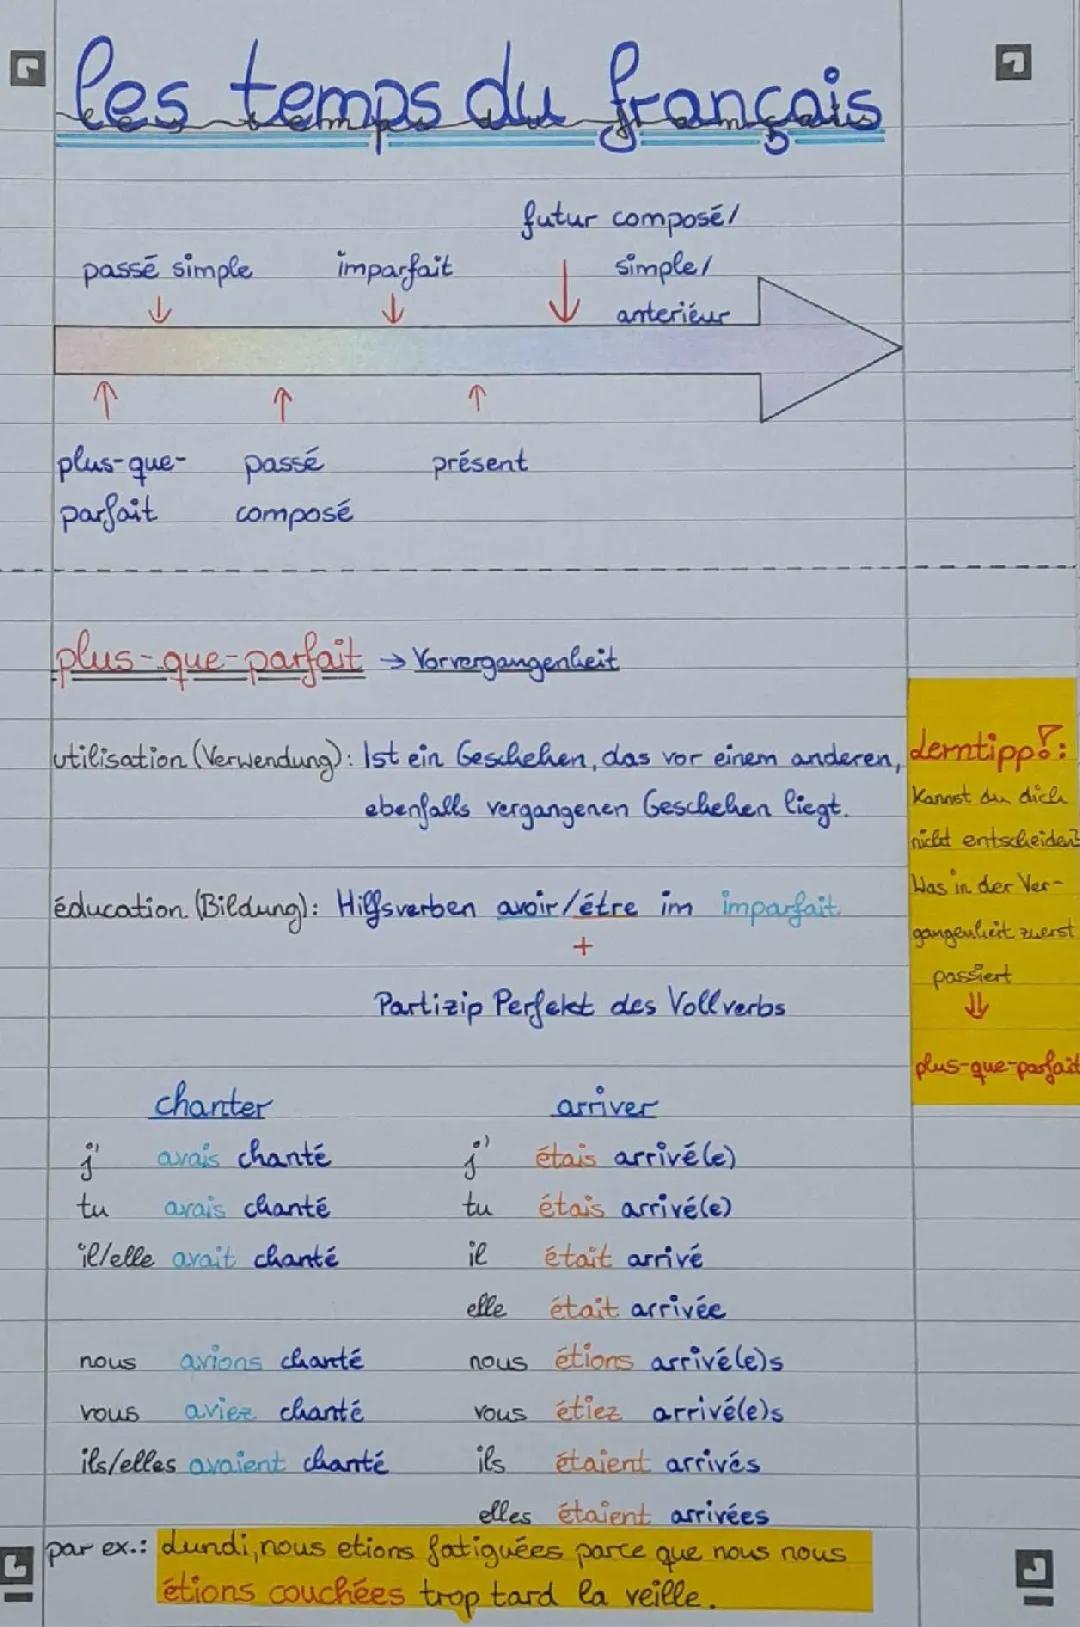 les temps du français
futur composé/
passé simple imparfait simple/
anteriéur
plus-que- passé présent
parfait composé
plus-que-parfait → Vorvergangenheit
utilisation (Verwendung): Ist ein Geschehen, das vor einem anderen,
ebenfalls vergangenen Geschehen liegt.
éducation (Bildung): Hilfsverben avoir/étre im imparfait
+
Partizip Perfekt des Vollverbs
Lerntipp!:
Kannst du dich
nicht entscheiden?
Was in der Ver-
gangenheit zuerst
passiert
⇓
plus-que-parfait
chanter arriver
j' avais chanté j' étais arrivé(e)
tu avais chanté tu étais arrivé(e)
il/elle avait chanté il était arrivé
elle était arrivée
nous avions chanté nous étions arrivé(e)s
vous aviez chanté vous étiez arrivé(e)s
ils/elles avaient chanté ils étaient arrivés
elles étaient arrivées
par ex.: Lundi, nous etions fatiguées parce que nous nous
étions couchées trop tard la veille.